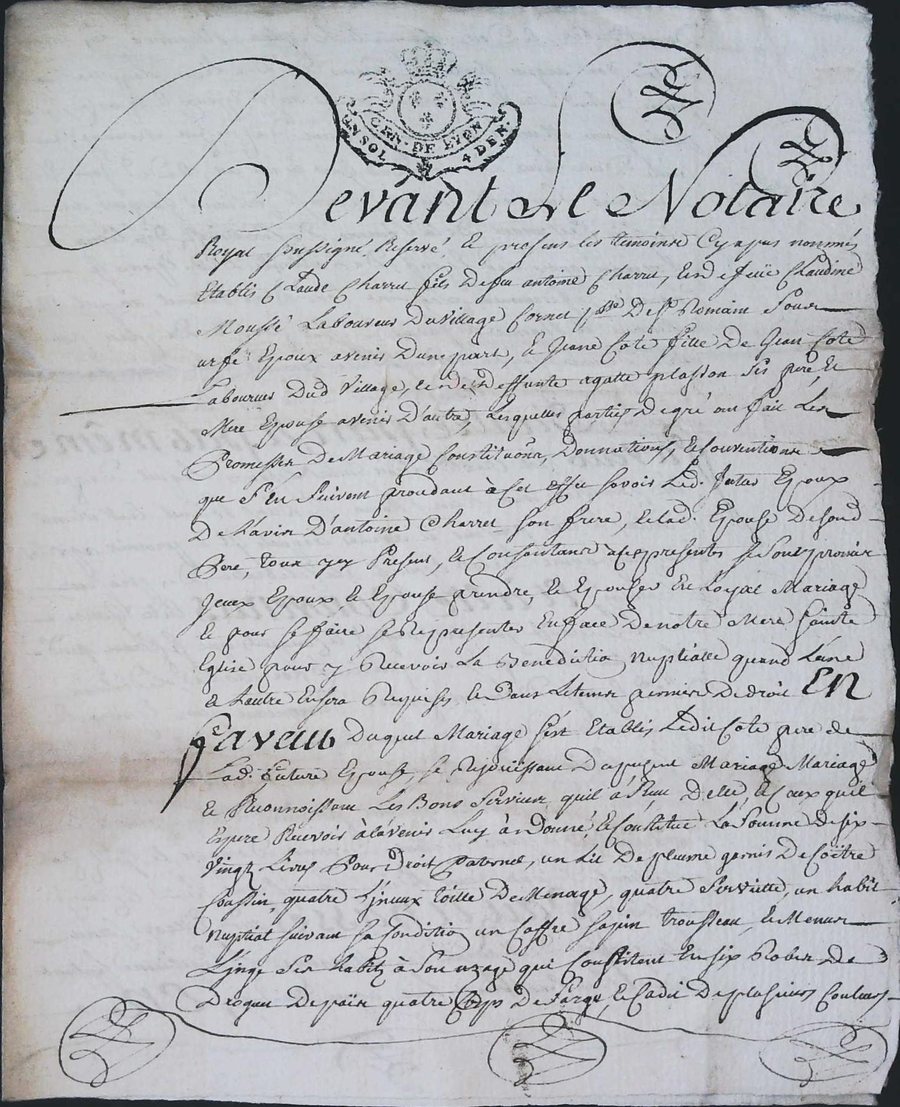 GEN. DE LYON
UN SOL 4 DEN.
Devant le Notaire
Royal soussigné Reservé, et presens les temoins Cy apres nommés
Etablis Claude Charret fils de feu antoine Charret, et de feüe Claudine
Moussé Laboureur du village Cornet De St Romain Sous
urfé Epoux avenir Dune part, et Jeane Coté fille de Jean Coté
Laboureur Dud village, et de deffunte agatte plasson ses pere, et
Mere Epouse avenir D'autre, Lesquelles parties De gré ont fait les
Promesses De Mariage Constitutions, Donnations, et Conventions
que s'en suivent procedant à Cet effet savoir Led. futur Epoux
De L'avis D'antoine Charret son frere, et lad. Epouse de sond
Pere, tous icy Presens, et Consentans aux presentes se sont promis
Epoux et Epouse prendre, et Epouser En Loyal Mariage
Et pour se faire se Representer En face De notre Mere Sainte
Eglise pour y Recevoir La Benediction Nuptialle quand L'une
et L'autre En sera Requise, et Dans Le temps permis de droit En
faveur Duquel Mariage s'est Etablis Ledit Coté pere de
Lad. future Epouse, se Rejouissant Du present Mariage Mariage
et Reconnoissant Les Bons services quil à Reçu Delle, et Ceux quil
Espere Recevoir à L'avenir Luy à Donné, et Constitué La Somme De six
vingt Livres Pour Droit Paternel, un Lit De plume garnis De Coitre
Coussin, quatre Linceux toille De Menage, quatre Serviette, un habit
Nuptial suivant sa Condition un Coffre sapin trousseau, et Menus
Linge Ses habits à Son uzage qui Consistent En six Robes de
Drogue De païs quatre Corps De Sarge, et Cadis De plusieurs Couleurs